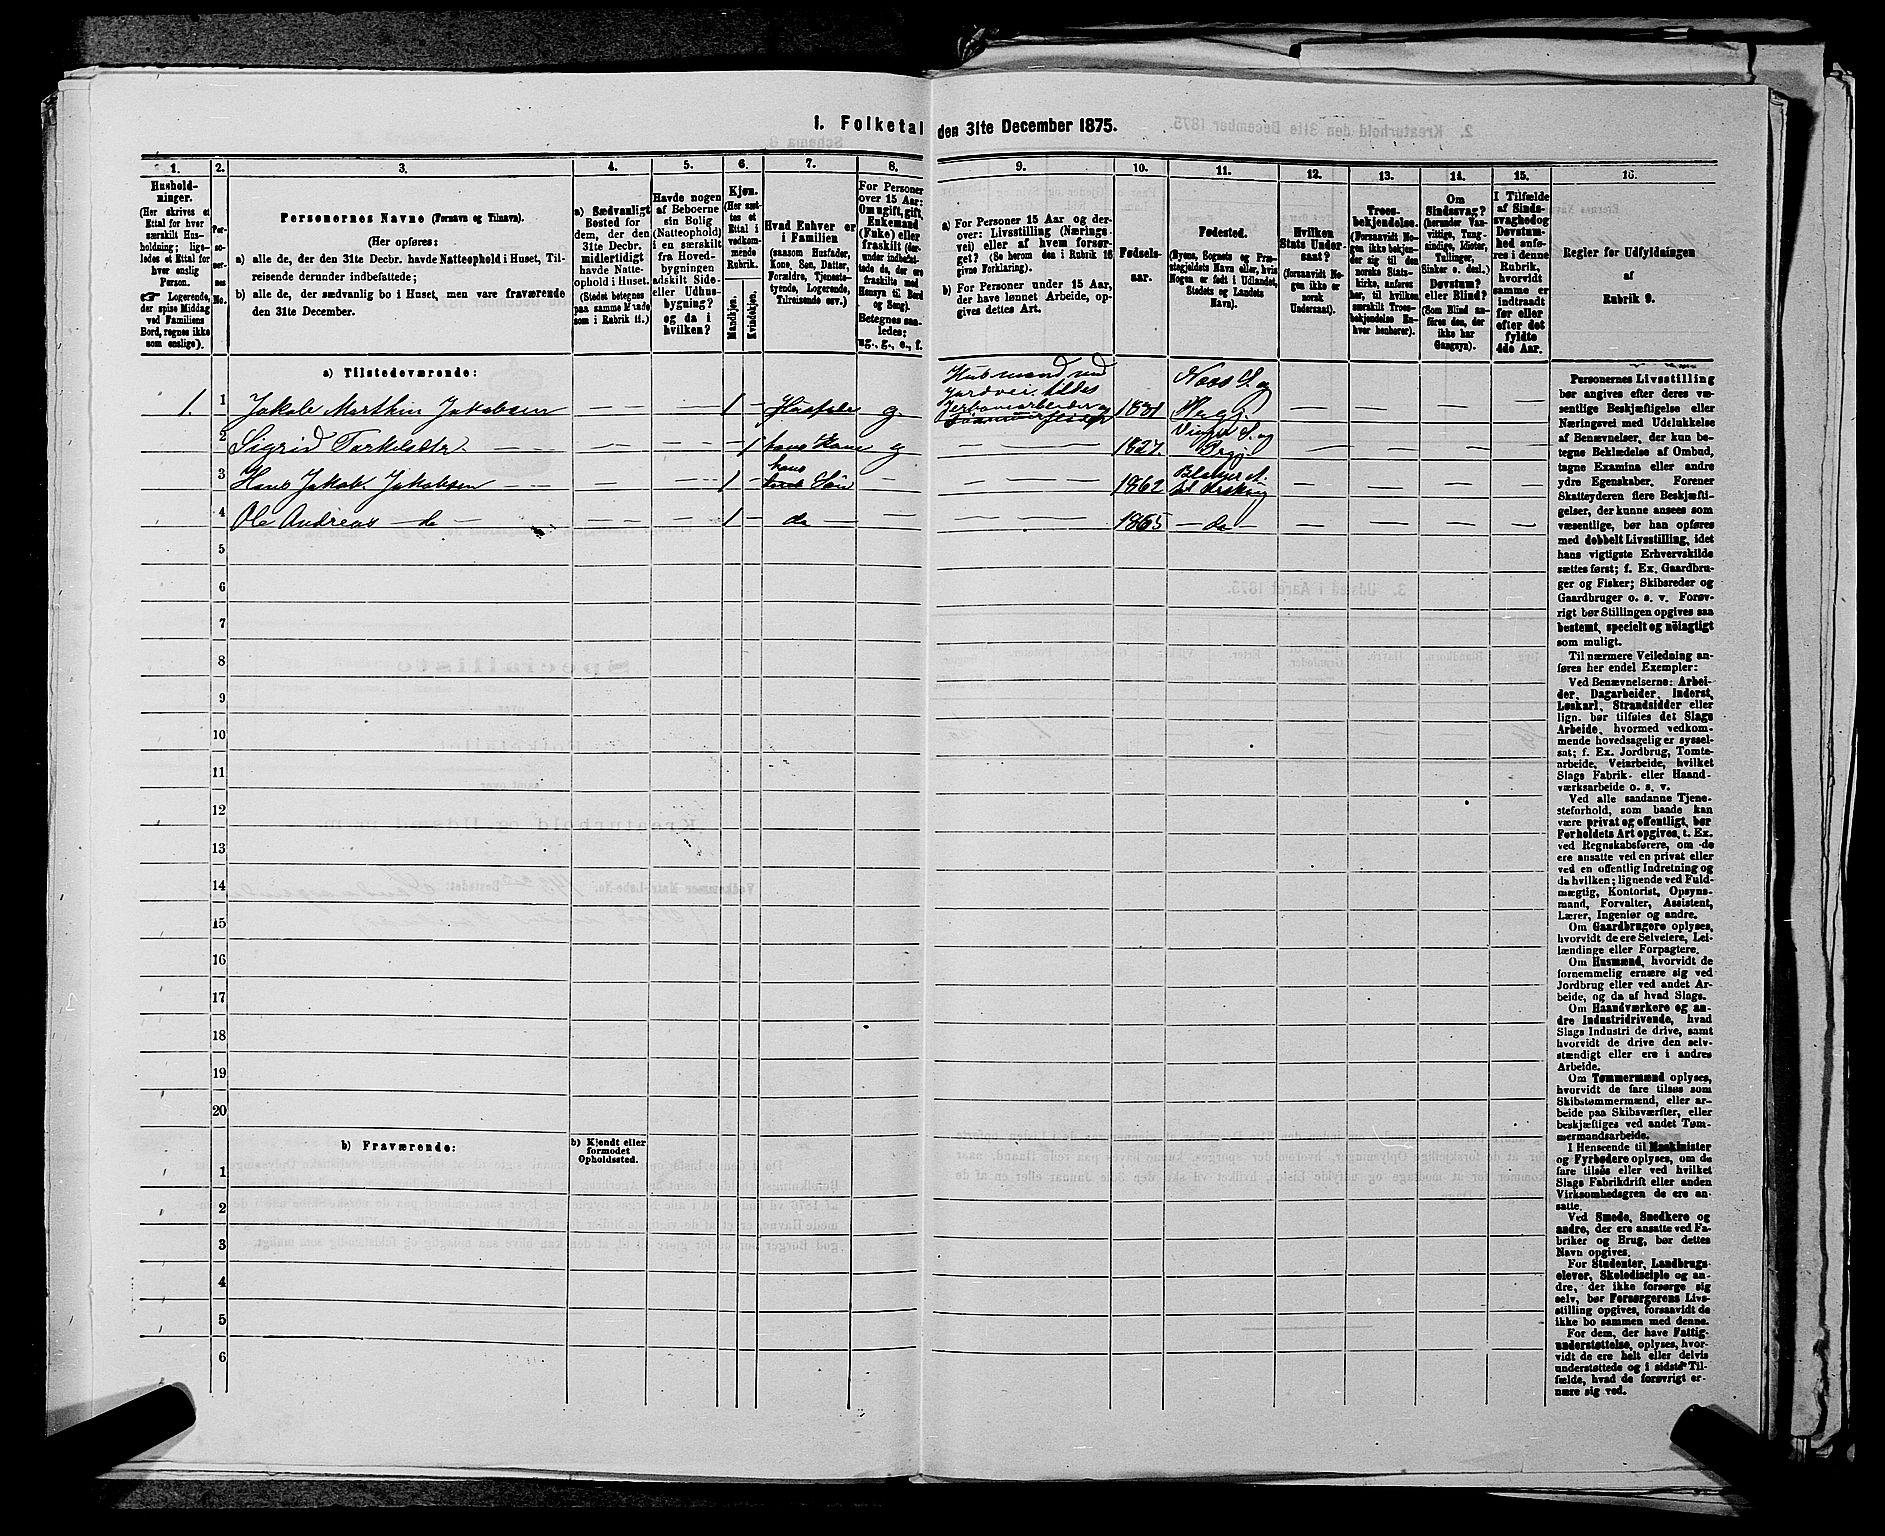 1. Folketal den 31te December 1875.
1.
Hushold-
ninger.
(Her skrives et
Ettal for hver
særskilt Hus-
holdning; lige-
ledes et Ettal for
hver enslig
Person.
☞ Logerende,
der spise Middag
ved Familiens
Bord, regnes ikke
som enslige).
2.
Per-
so-
ner-
nes
No.
3.
Personernes Navne (Fornavn og Tilnavn).
(Her opføres:
a) alle de, der den 31te Decbr. havde Natteophold i Huset, Til-
reisende derunder indbefattede;
b) alle de, der sædvanlig bo i Huset, men vare fraværende
den 31te December.
4.
a) Sædvanligt
Bosted for
dem, der den
31te Decbr.
midlertidigt
havde Natte-
ophold i Huset.
(Stedet betegnes
paa samme Maade
som i Rubrik 11.)
5.
Havde nogen
af Beboerne
sin Bolig
(Natteophold)
i en særskilt
fra Hoved-
bygningen
adskilt Side-
eller Udhus-
bygning?
og da i
hvilken?
6.
Kjøn.
(Her sæt-
tes et
Ettal i
vedkom-
mende
Rubrik.
Mandkjøn.
Kvindekjøn.
7.
Hvad Enhver er
i Familien
(saasom Husfader,
Kone, Søn, Datter,
Forældre, Tjeneste-
tyende, Logerende,
Tilreisende osv.)
8.
For Personer
over 15 Aar:
Om ugift, gift,
Enkemand
(Enke) eller
fraskilt (der-
under indbefat-
tede de, der ere
fraskilte med
Hensyn til Bord
og Seng).
Betegnes saa-
ledes:
ug., g., e., f.
9.
a) For Personer 15 Aar og der-
over: Livsstilling (Nærings-
vei) eller af hvem forsør-
get? (Se herom den i Rubrik 16
givne Forklaring).
b) For Personer under 15 Aar,
der have lønnet Arbeide, op-
gives dettes Art.
10.
Fødsels-
aar.
11.
Fødested.
(Byens, Sognets og Præ-
stegjeldets Navn eller, hvis
Nogen er født i Udlandet,
Stedets og Landets
Navn).
12.
Hvilken
Stats Under-
saat?
(forsaavidt No-
gen ikke er
norsk
Undersaat).
13.
Troes-
bekjendelse.
(Forsaavidt No-
gen ikke bekjen-
der sig til den
norske Stats-
kirke, anføres
her, til hvilken
særskilt Troes-
bekjendelse En-
hver henhører).
14.
Om
Sindssvag?
(herunder Van-
vittige, Tung-
sindige, Idioter,
Tullinger,
Sinker o. desl.)
Døvstum?
eller Blind?
(Som Blind an-
føres den, der
ikke har
Gangsyn).
15.
I Tilfælde
af Sinds-
svaghed og
Døvstum-
hed anfø-
res i denne
Rubrik,
hvorvidt
samme er
indtraadt
før eller
efter det
fyldte
4de Aar.
16.
Regler for Udfyldningen
af
Rubrik 9.
a) Tilstedeværende:
1. 1 Jakob Marthin Jakobsen — — 1 — Husfader g. Husmand med Jord 1831 Næss S. og — — — —
2 Sigrid Torkelsdtr. — — — 1 hans Kone g — 1827. Vinger S. og Prgj. — — — —
3 Hans Jakob Jakobsen — — 1 — hans Søn — — 1862 — — — —
4 Ole Andreas — do — — — 1 — do — — — 1865 — do — — — — —
5
6
7
8
9
10
11
12
13
14
15
16
17
18
19
20
b) Fraværende:
b) Kjendt eller
formodet
Opholdssted.
1
2
3
4
5
6
Personernes Livsstilling
bør angives efter deres væ-
sentlige Beskjæftigelse eller
Næringsvei med Udelukkelse
af Benævnelser, der kun be-
tegne Beklædelse af Ombud,
tagne Examina eller andre
ydre Egenskaber. Forener
Skatteyderen flere Beskjæfti-
gelser, der kunne ansees som
væsentlige, bør han opføres
med dobbelt Livsstilling, idet
hans vigtigste Erhvervskilde
sættes først; f. Ex. Gaardbru-
ger og Fisker; Skibsreder og
Gaardbruger o. s. v. Forøv-
rigt bør Stillingen opgives saa
bestemt, specielt og nöiagtigt
som muligt.
Til nærmere Veiledning an-
føres her endel Exempler:
Ved Benævnelserne: Arbei-
der, Dagarbeider, Inderst,
Løskarl, Strandsidder eller
lign. bør tilføies det Slags
Arbeide, hvormed vedkom-
mende hovedsagelig er syssel-
sat; f. Ex. Jordbrug, Tomte-
arbeide, Veiarbeide, hvilket
Slags Fabrik- eller Haand-
værksarbeide o. s. v.
Ved alle saadanne Tjene-
steforhold, som baade kan
være privat og offentligt, bør
Forholdets Art opgives, t. Ex.
ved Regnskabsførere, om de
ere ansatte ved en privat eller
ved en offentlig Indretning og
da hvilken; lignende ved Fuld-
mægtig, Kontorist, Opsyns-
mand, Forvalter, Assistent,
Lærer, Ingeniør og andre.
Om Gaardbrugere oplyses,
hvorvidt de ere Selveiere, Lei-
lændinge eller Forpagtere.
Om Husmænd, hvorvidt de
fornemmelig ernære sig ved
Jordbrug eller ved andet Ar-
beide, og da af hvad Slags.
Om Haandværkere og an-
dre Industridrivende, hvad
Slags Industri de drive, samt
hvorvidt de drive den selv-
stændigt eller ere i andres
Arbeide.
Om Tømmermænd oplyses,
hvorvidt de fare tilsøs som
Skibstømmermænd, eller ar-
beide paa Skibsværfter, eller
beskjæftiges ved andet Tøm-
mermandsarbeide.
I Henseende til Maskinister
og Fyrbødere oplyses, om de
fare tilsøs eller ved hvilket
Slags Fabrikdrift eller anden
Virksomhedsgren de ere an-
satte.
Ved Smede, Snedkere og
andre, der ere ansatte ved Fa-
briker og Brug, bør dettes
Navn opgives.
For Studenter, Landbrugs-
elever, Skoledisciple og an-
dre, der ikke forsørge sig
selv, bør Forsørgerens Livs-
stilling opgives, forsaavidt de
ikke bo sammen med denne.
For dem, der have Fattig-
understøttelse, oplyses, hvor-
vidt de ere helt eller delvis
understøttede og i sidste Til-
fælde, hvad de forøvrigt er-
nære sig ved.